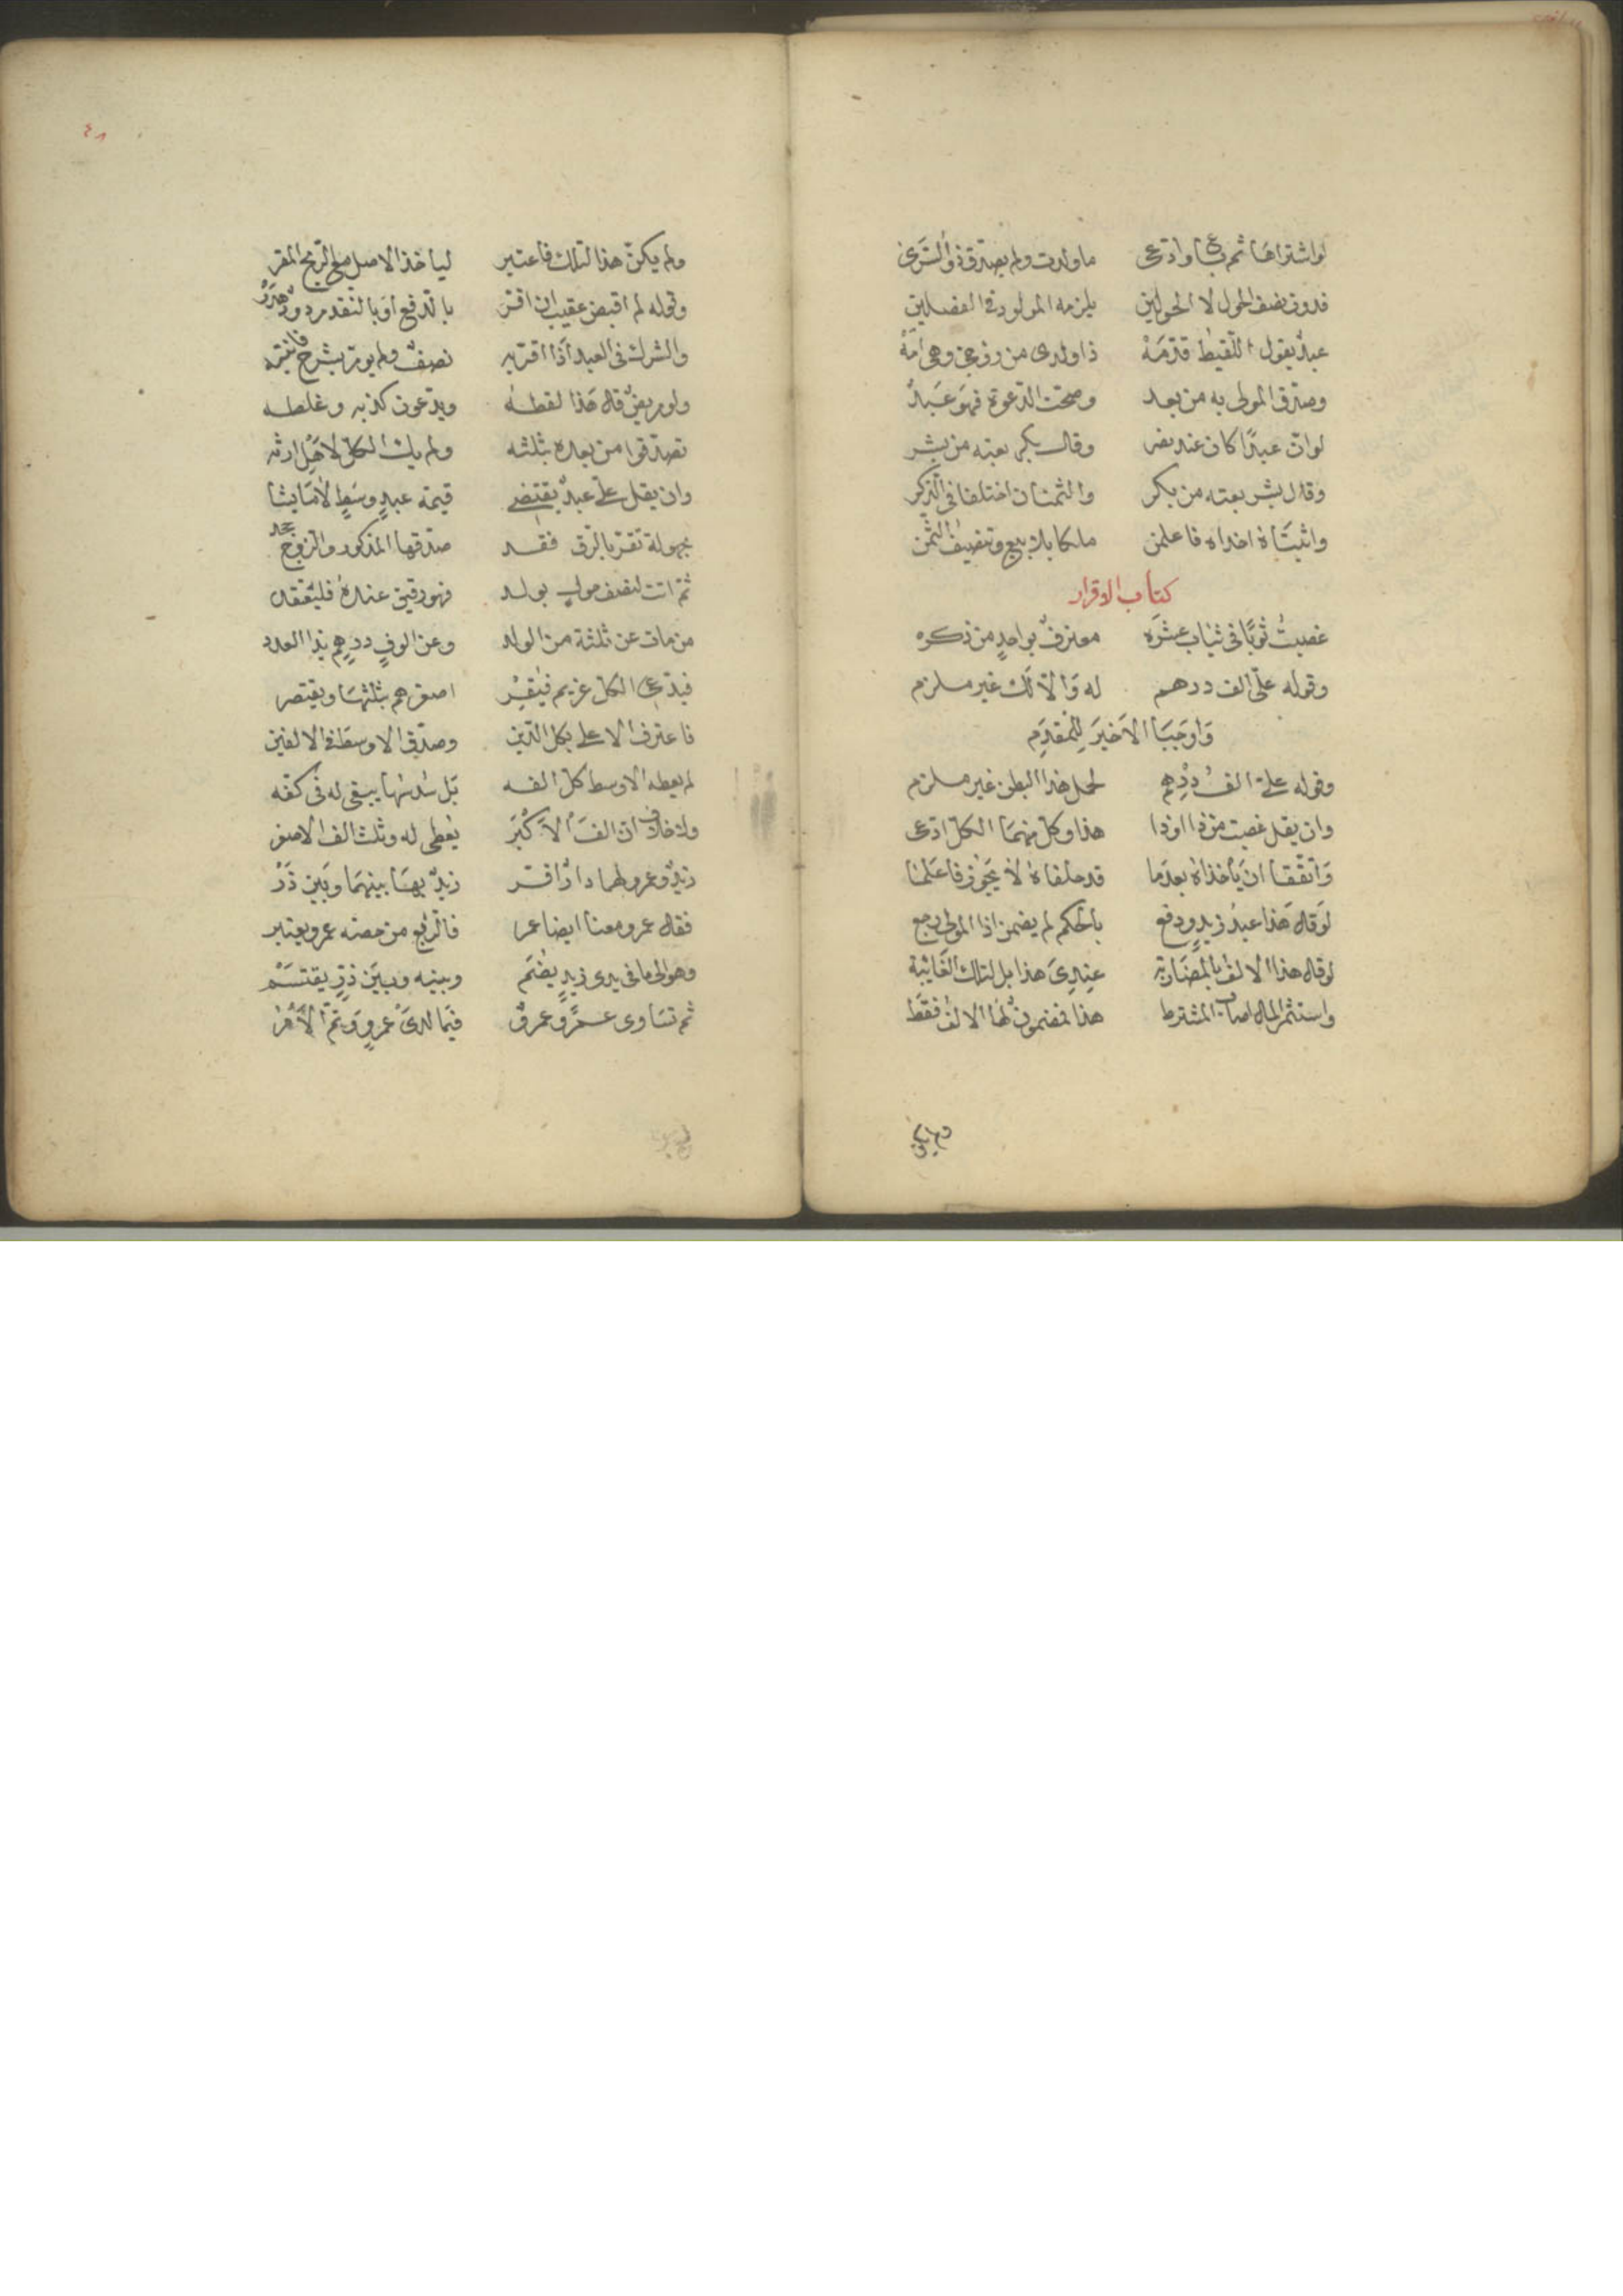 لو اشتراها ثم باعها وادعى ما ولدت ولم يصدق ذو الشرى
فدون نصف الحول لا الحولين يلزمه المولود في الفصلين
عبد يقول اللقيط قدمه ذا ولدى من زوجتى وهى امه
وصدق المولى به من بعد وصحت الدعوة فهو عبد
لو ان عبدا كان عند نصر وقال بكر بعته من بشر
وقال بشر بعته من بكر والثمنان اختلفا في الذكر
واثبتاه اخذاه فاعلمن ملكا بلا بيع وتنصيف الثمن
كتاب الاقرار
غصبت ثوبا في ثياب عشره معترف بواحد من ذكره
وقوله على الف درهم له والا لك غير ملزم
وَاوجَبَا الاَخيرَ لِلمُقدِمِ
وقوله على الف درهم لحمل هذا البطن غير ملزم
وان يقل غصبت من ذا او ذا هذا وكل منهما الكل ادعى
واتفقا ان ياخذاه بعدما قد حلفاه لا يجوز فاعلما
لو قال هذا عبد زيد ودفع بالحكم لم يضمن اذا المولى رجع
لو قال هذا الالف بالمضاربة عندى هذا بل لتلك الغائبة
واستثمر المال اصاب المشترط هذا فمضمون لها الالف فقط
ولم يكن
٤٨
ولم يكن هذا لتلك فاعتبر لياخذ الاصل مع الربح المقر
وقوله لم اقبض عقيب ان اقر بالدفع او بالنقد مردود هدر
والشرك في العبد اذا اقر به نصف ولم يومر بشرح فانتبه
ولو مريض قال هذا لقطه ويدعون كذبه وغلطه
تصدقوا من بعده بثلثه ولم يك الكل لاهل ارثه
وان يقل على عبد يقتضى قيمة عبد وسط لا ما يشا
مجهولة تقر بالرق فقد صدقها المذكور والزوج جحد
ثم اتت لنصف حول بولد فهو رقيق عنده فليفتقد
من مات عن ثلثة من الولد وعن الوف درهم بذا العدد
فيدعى الكل غريم فيقر اصغرهم بثلثها ويقتصر
فاعترف الاعلى بكل الدين وصدق الاوسط في الالفين
لم يعطه الاوسط كل الفه بل سدسها يبقى له في كفه
ولا خلاف ان الف الاكبر يعطى له وثلث الف الاصغر
زيد وعمرو لهما دار اقر زيد بها بينهما وبين ذر
فقال عمرو معنا ايضا عمر فالربع من حصة عمرو يعتبر
وهو الى ما في يدى زيد يضم وبينه وبين ذر يقتسم
ثم تساوى عمر وعمرو فيما لدى عمرو وتم الامر